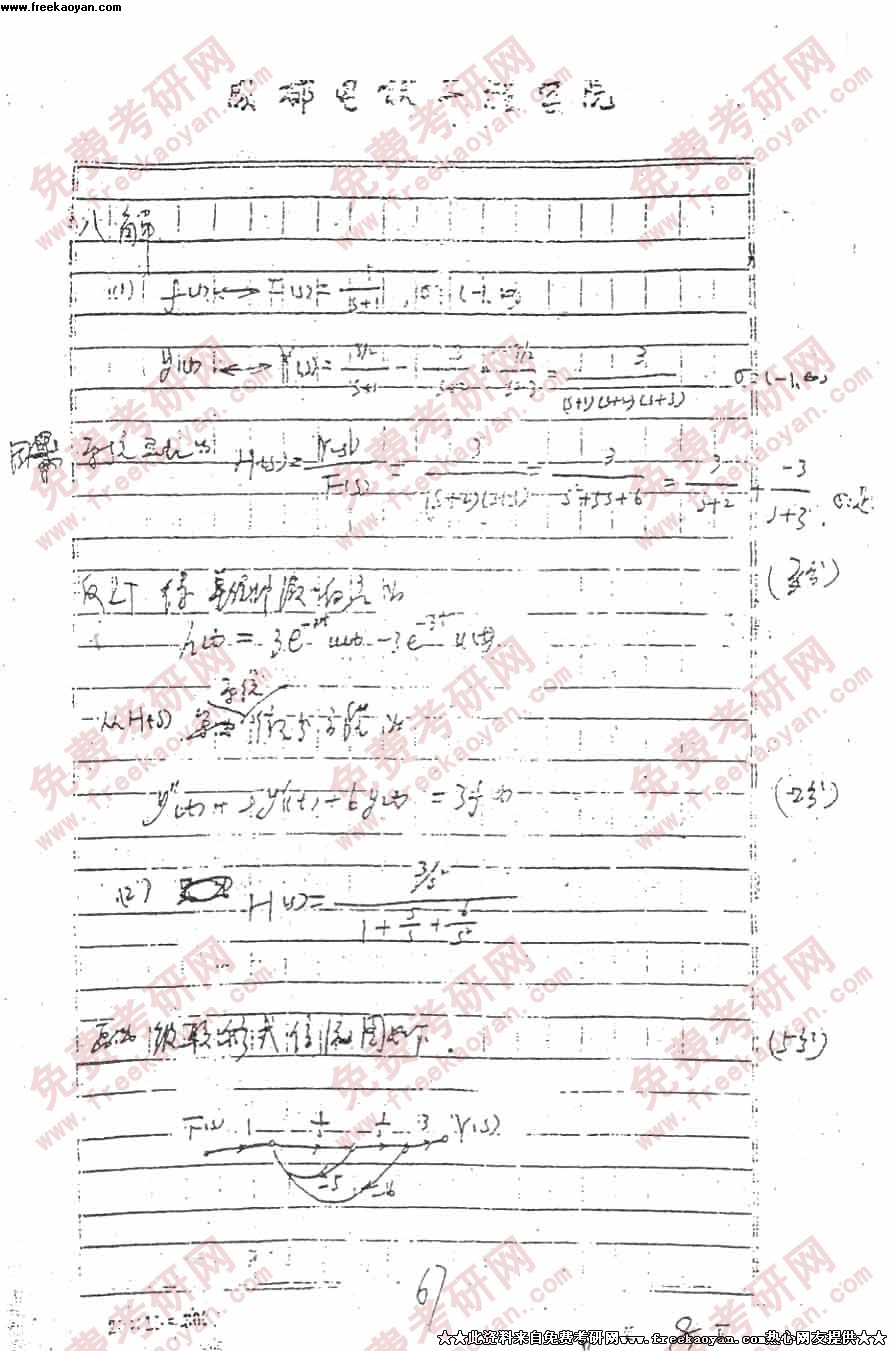 www.freekaoyan.com
成都电讯工程学院
八 解
(1) f(t) ↔ F(s) = 1/(s+1), σ: (-1, ∞)
y(t) ↔ Y(s) = (3/2)/(s+1) - 3/(s+2) + (3/2)/(s+3) = 3/((s+1)(s+2)(s+3)) σ: (-1, ∞)
H(s) = Y(s)/F(s) = 3/((s+2)(s+3)) = 3/(s²+5s+6) = 3/(s+2) + -3/(s+3),
反LT 得 单位冲激响应为
h(t) = 3e^{-2t}u(t) - 3e^{-3t}u(t)
系统
从H(s) 微分方程为
y''(t) + 5y'(t) + 6y(t) = 3f(t)
(2分)
(2) H(s) = (3/s²)/(1 + 5/s + 6/s²)
级联形式信流图如下.
(5分)
F(s) 1 1/s 1/s 3 Y(s)
-5 -6
67
★★此资料来自免费考研网www.freekaoyan.com热心网友提供★★